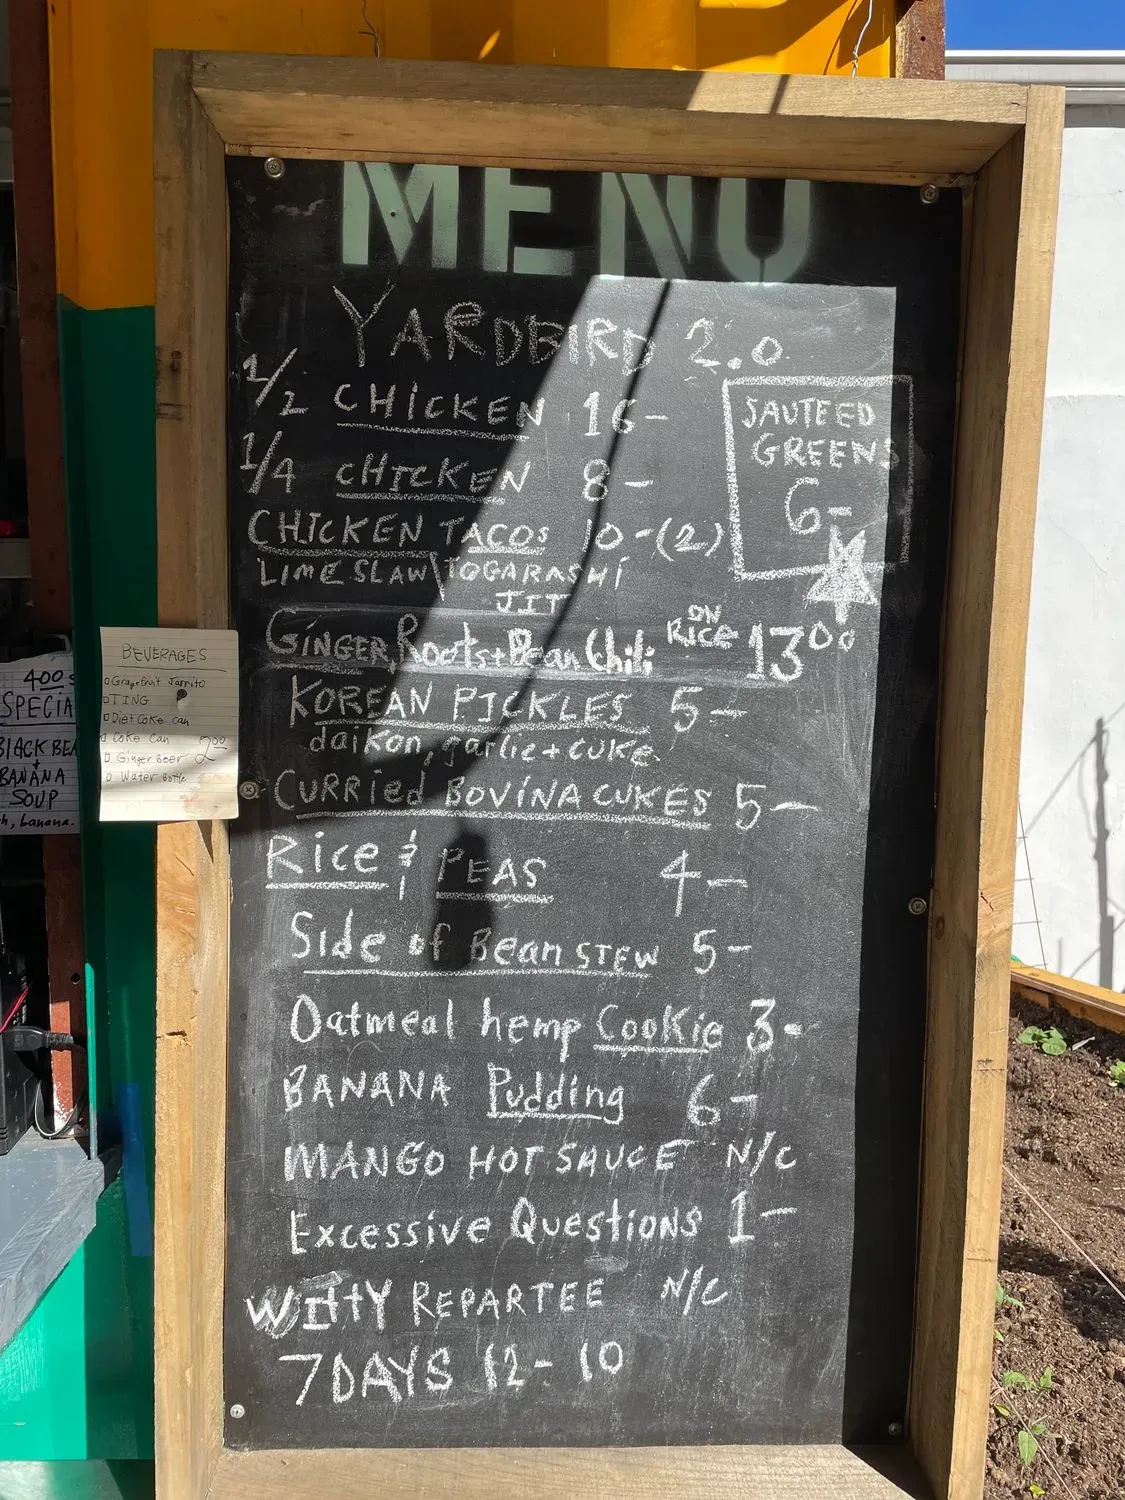 MENU
YARDBIRD 2.0
1/2 CHICKEN 16-
1/4 CHICKEN 8-
CHICKEN TACOS 10-(2)
LIME SLAW\TOGARASHI
JIT
SAUTEED
GREENS
6-
GINGER, Roots + Bean Chili ON RICE 13⁰⁰
KOREAN PICKLES 5-
daikon, garlic + cuke
CURRied BOVINA CUKES 5-
Rice & PEAS 4-
Side of Bean STEW 5-
Oatmeal hemp Cookie 3-
BANANA Pudding 6-
MANGO HOT SAUCE N/C
Excessive Questions 1-
WITTY REPARTEE N/C
7 DAYS 12-10
BEVERAGES
Grapefruit Jarrito
TING
Diet Coke can
Coke Can 2⁰⁰
Ginger Beer
Water Bottle
400
SPECIA
BLACK BEA
+
BANANA
SOUP
h, banana.